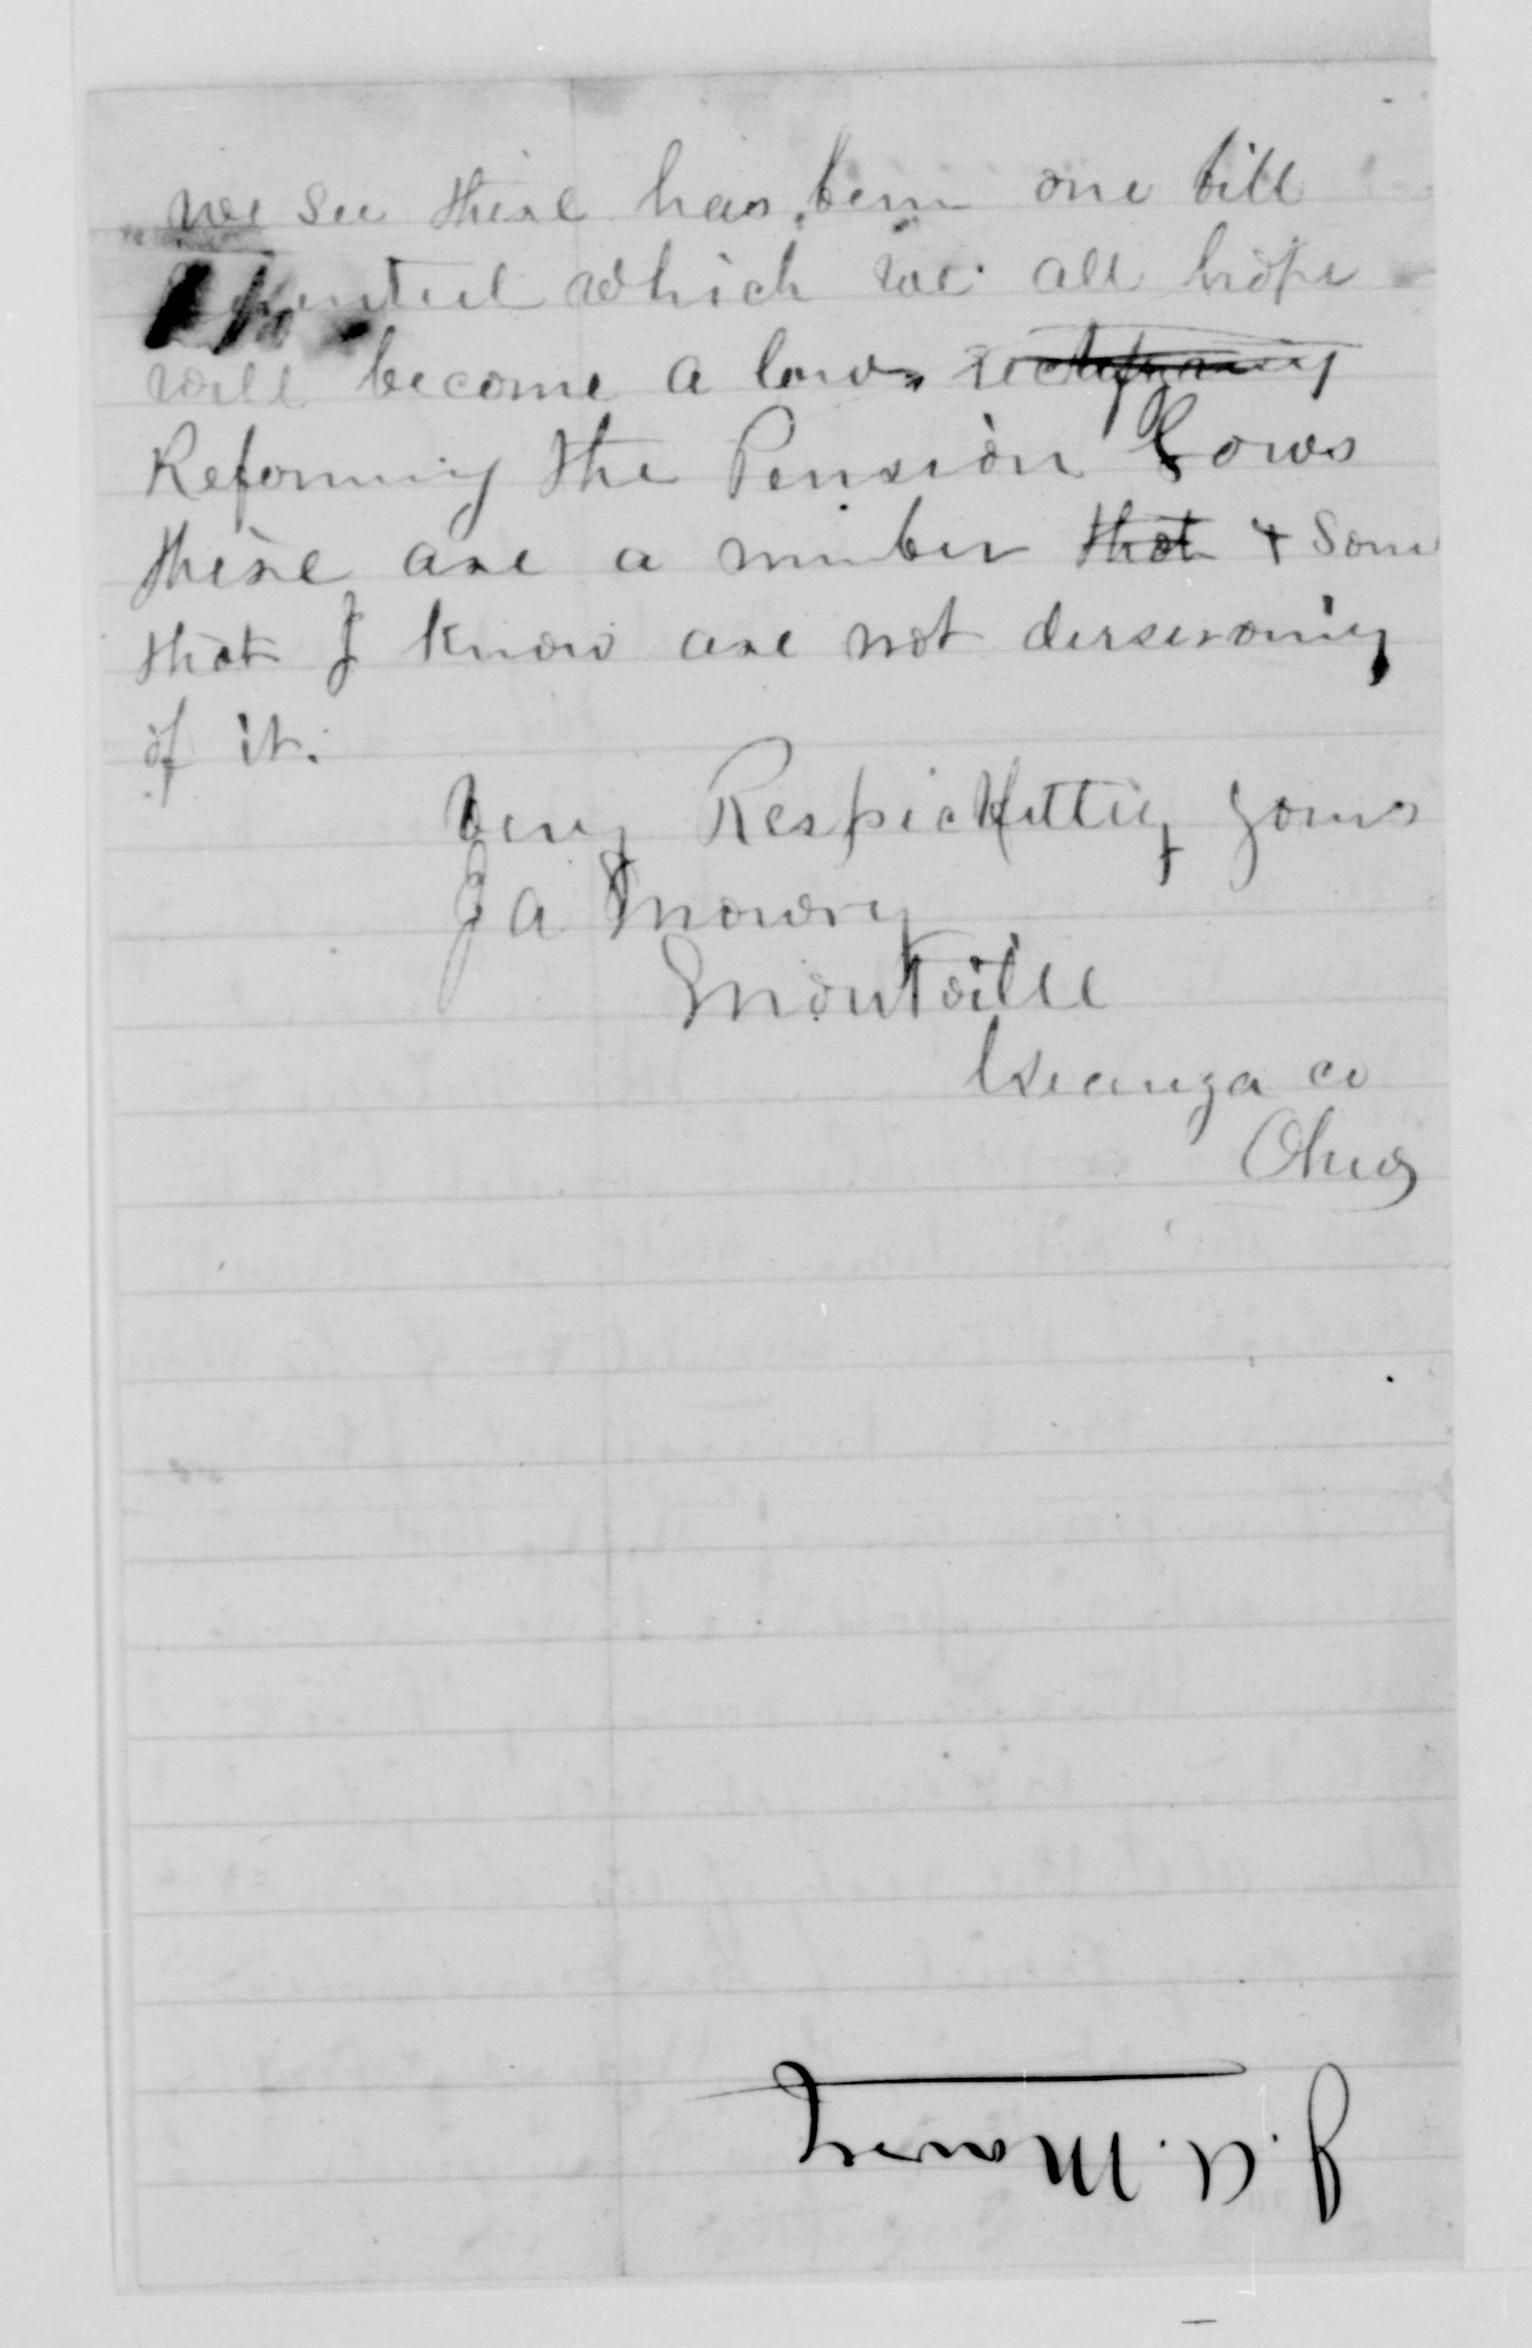 we see there has been one bill
which we all hope
will become a law
Reforming the Pension Laws
there are a number ~~that~~ & some
that I know are not derserving
of it.
Very Respectfully yours
J A Mowry
Montville
Geauga co
Ohio
J. A. Mowry